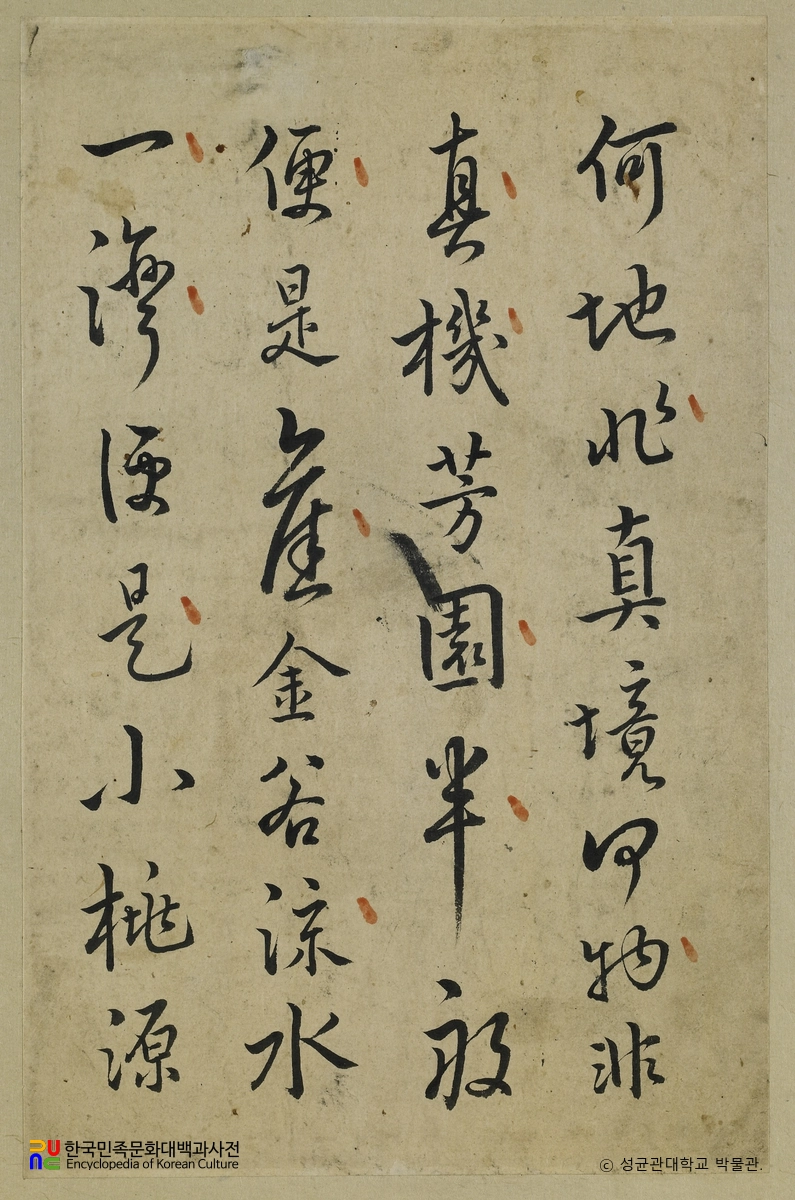 何地非真境何物非
真機芳園半畝
便是舊金谷流水
一灣便是小桃源
한국민족문화대백과사전
Encyclopedia of Korean Culture
© 성균관대학교 박물관.